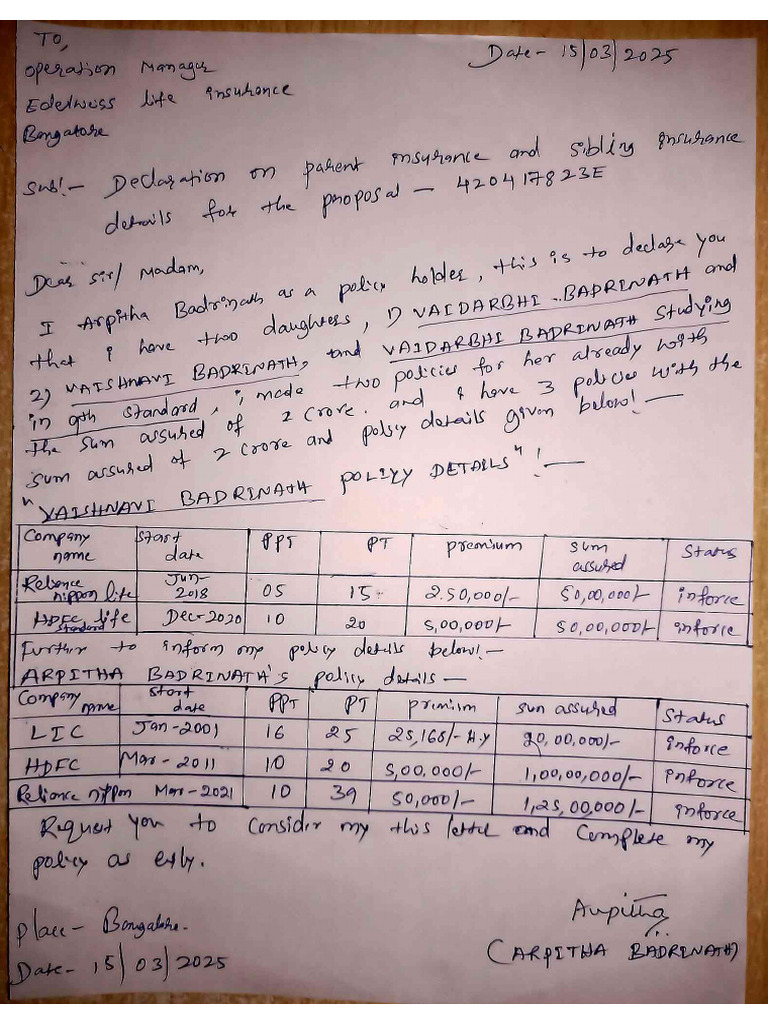 To,
Date- 15/03/2025
Operation Manager
Edelweiss life insurance
Bangalore
Sub:- Declaration on parent insurance and sibling insurance
details for the proposal - 420417823E
Dear Sir/ Madam,
I Arpitha Badrinath as a policy holder, this is to declare you
that i have two daughters, 1) VAIDARBHI BADRINATH and
2) VAISHNAVI BADRINATH, and VAIDARBHI BADRINATH Studying
in 9th standard, i, made two policies for her already with
the sum assured of 2 crore. and i have 3 policies with the
sum assured of 2 crore and policy details given below!-
"VAISHNAVI BADRINATH POLIYY DETAILS"!-
Company name Start date PPT PT premium sum assured Status
Reliance nippon life Jun-2018 05 15 2.50,000/- 50,00,000/- inforce
HDFC life standard Dec-2020 10 20 5,00,000/- 50,00,000/- inforce
Further to inform my policy details below!-
ARPITHA BADRINATH's policy details-
Company name Start date PPT PT premium sum assured Status
LIC Jan-2001 16 25 25,165/- H.y 20,00,000/- inforce
HDFC Mar-2011 10 20 5,00,000/- 1,00,00,000/- inforce
Reliance nippon Mar-2021 10 39 50,000/- 1,25,00,000/- inforce
Request you to consider my this letter and Complete my
policy as erly.
Place- Bangalore.
Arpitha
Date- 15/03/2025
(ARPITHA BADRINATH)